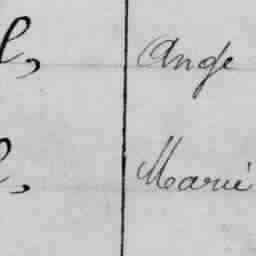 l, Ange
l, Marie